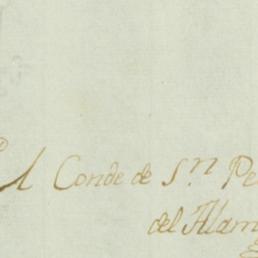 El Conde de Sⁿ. Pe
del Alam